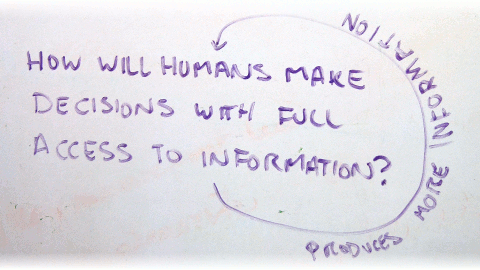 HOW WILL HUMANS MAKE
DECISIONS WITH FULL
ACCESS TO INFORMATION?
PRODUCES MORE INFORMATION